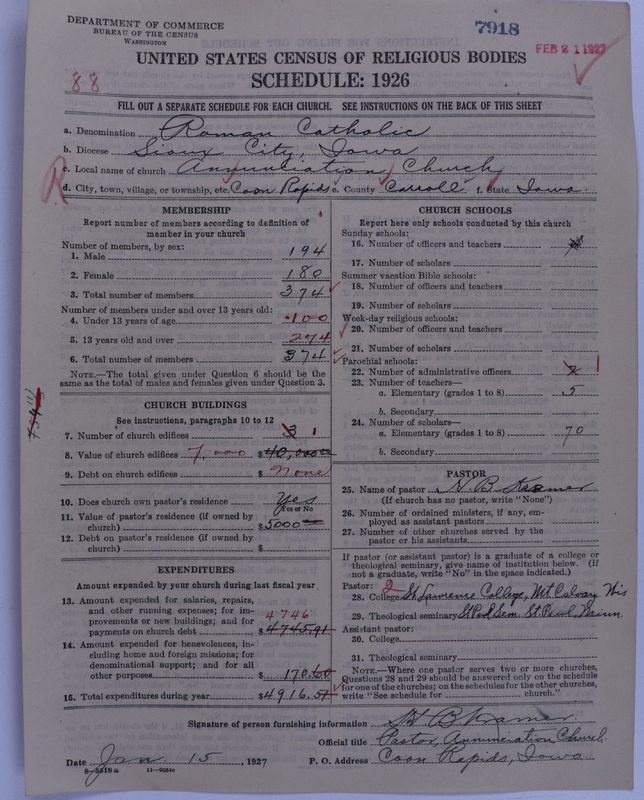 DEPARTMENT OF COMMERCE
BUREAU OF THE CENSUS
WASHINGTON
7918
FEB 21 1927
UNITED STATES CENSUS OF RELIGIOUS BODIES
SCHEDULE: 1926
88
FILL OUT A SEPARATE SCHEDULE FOR EACH CHURCH. SEE INSTRUCTIONS ON THE BACK OF THIS SHEET
a. Denomination Roman Catholic
b. Diocese Sioux City, Iowa
c. Local name of church Annunciation Church
d. City, town, village, or township, etc. Coon Rapids e. County Carroll f. State Iowa.
R
MEMBERSHIP
Report number of members according to definition of
member in your church
Number of members, by sex:
1. Male 194
2. Female 180
3. Total number of members 374
Number of members under and over 13 years old:
4. Under 13 years of age 100
5. 13 years old and over 274
6. Total number of members 374
NOTE.—The total given under Question 6 should be the
same as the total of males and females given under Question 3.
CHURCH BUILDINGS
See instructions, paragraphs 10 to 12
7. Number of church edifices 3 1
8. Value of church edifices 7,000 $40,000.00
9. Debt on church edifices $ None
10. Does church own pastor's residence Yes
Yes or No
11. Value of pastor's residence (if owned by
church) $5000.00
12. Debt on pastor's residence (if owned by
church) $
EXPENDITURES
Amount expended by your church during last fiscal year
13. Amount expended for salaries, repairs,
and other running expenses; for im-
provements or new buildings; and for 4746
payments on church debt $4745.91
14. Amount expended for benevolences, in-
cluding home and foreign missions; for
denominational support; and for all
other purposes $170.60
15. Total expenditures during year $4916.51
CHURCH SCHOOLS
Report here only schools conducted by this church
Sunday schools:
16. Number of officers and teachers
17. Number of scholars
Summer vacation Bible schools:
18. Number of officers and teachers
19. Number of scholars
Week-day religious schools:
20. Number of officers and teachers
21. Number of scholars
Parochial schools:
22. Number of administrative officers 2 1
23. Number of teachers—
a. Elementary (grades 1 to 8) 5
b. Secondary
24. Number of scholars—
a. Elementary (grades 1 to 8) 70
b. Secondary
PASTOR
25. Name of pastor B. Kramer
(If church has no pastor, write "None")
26. Number of ordained ministers, if any, em-
ployed as assistant pastors
27. Number of other churches served by the
pastor or his assistants
If pastor (or assistant pastor) is a graduate of a college or
theological seminary, give name of institution below. (If
not a graduate, write "No" in the space indicated.)
Pastor: 2
28. College St. Lawrence College, Mt Calvary. Wis
29. Theological seminary St Paul Sem. St Paul, Minn.
Assistant pastor:
30. College
31. Theological seminary
NOTE.—Where one pastor serves two or more churches,
Questions 28 and 29 should be answered only on the schedule
for one of the churches; on the schedules for the other churches,
write "See schedule for church."
Signature of person furnishing information B Kramer
Official title Pastor, Annunciation Church
Date Jan. 15, 1927 P. O. Address Coon Rapids, Iowa
8—551B a